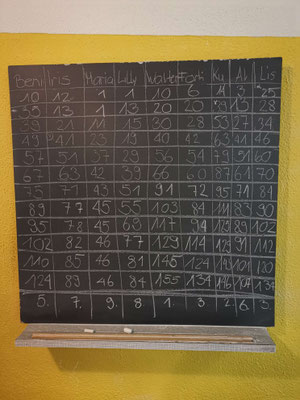 Beni Iris Maria Lilly Walter Forti Ku Al Lis
10 12 1 1 10 6 14 3 25
13 1 13 20 20 13 28
21 11 15 30 28 53 27 34
49 41 23 19 40 42 63 41 46
57 51 37 29 56 54 79 51 60
67 63 42 39 66 60 87 61 70
75 71 43 51 91 72 95 71 81
89 77 45 55 103 84 111 83 90
95 78 45 63 117 94 89 102
102 82 46 77 129 114 91 112
110 85 46 81 145 124 101 120
124 89 46 84 155 134 134
5. 7. 9. 8. 1. 3. 2. 6. 3